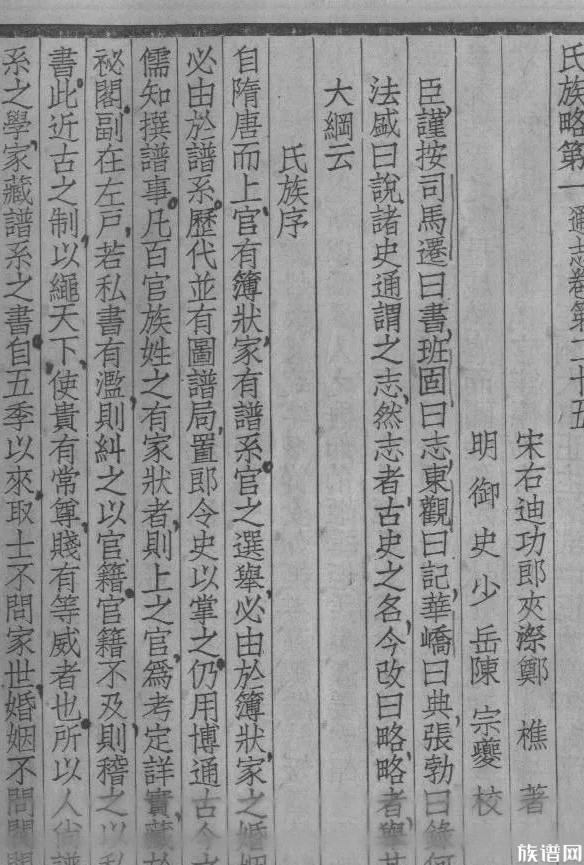 氏族略第一 通志卷第二十五
宋右迪功郎夾漈鄭樵著
明御史少岳陳宗夔校
臣謹按司馬遷曰書班固曰志東觀曰記華嶠曰典張勃曰錄何
法盛曰說諸史通謂之志然志者古史之名今改曰略略者舉其
大綱云
氏族序
自隋唐而上官有簿狀家有譜系官之選舉必由於簿狀家之婚姻
必由於譜系歷代並有圖譜局置郎令史以掌之仍用博通古今之
儒知撰譜事凡百官族姓之有家狀者則上之官為考定詳實藏於
祕閣副在左戶若私書有濫則糾之以官籍官籍不及則稽之以私
書此近古之制以繩天下使貴有常尊賤有等威者也所以人尚譜
系之學家藏譜系之書自五季以來取士不問家世婚姻不問閥
族谱网